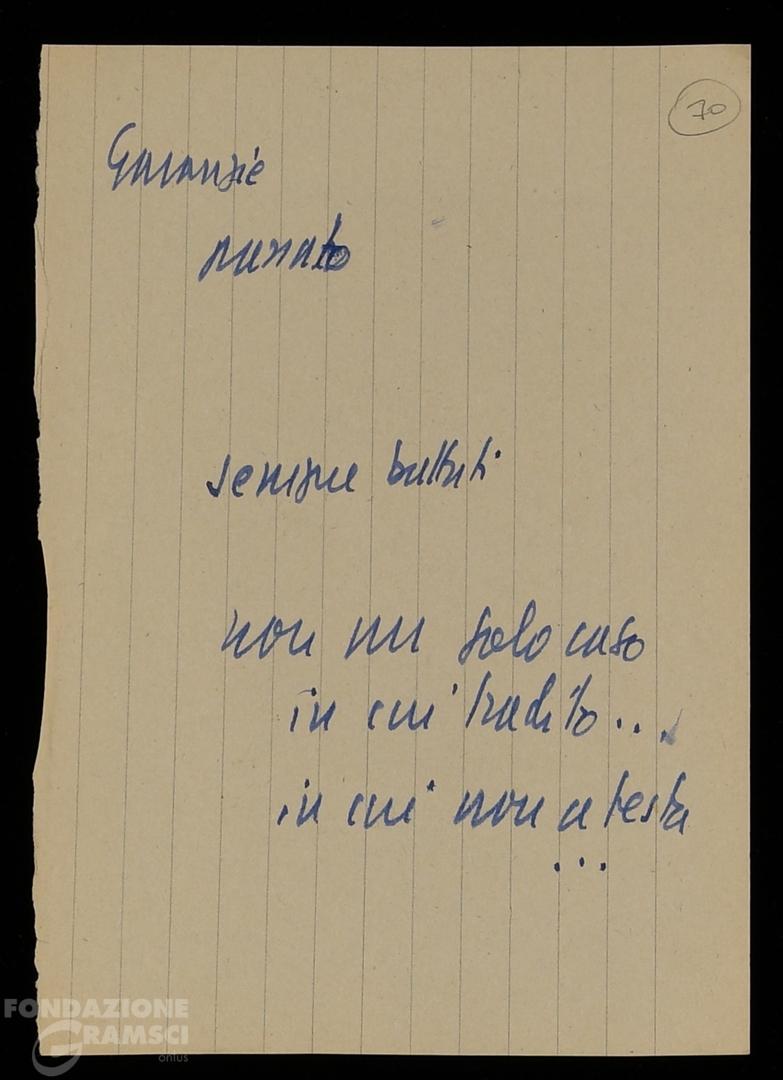 70
Garanzie
passato
sempre battuti
non un solo caso
in cui tradito...
in cui non a testa
...
FONDAZIONE
GRAMSCI
onlus